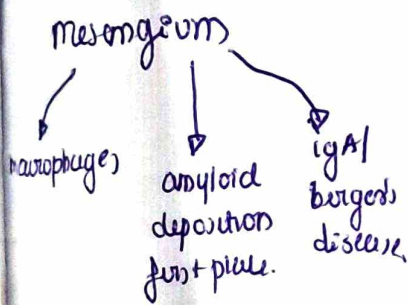 Mesangium
macrophages
amyloid
deposition
first place.
igA/
berger's
disease